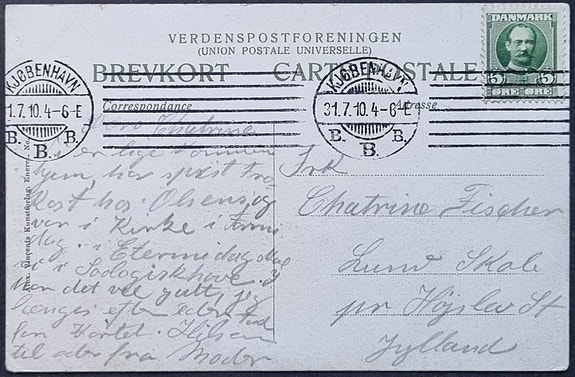 VERDENSPOSTFORENINGEN
(UNION POSTALE UNIVERSELLE)
BREVKORT CARTE POSTALE
DANMARK
5 5
ØRE ØRE
KJØBENHAVN
1.7.10.4-6 E
B. B. B.
KJØBENHAVN
31.7.10.4-6 E
B. B. B.
Correspondance
Adresse
Kære Chatrine
Vi er lige kommen
hjem, har spist Fro
kost hos Olsens, og
var i Kirke i Formi
dag. i Eftermiddag skal
vi i Zoologiskhave. I
har det vel godt, jeg
længes efter eder
Kortet. Hilsen
til eder fra Moder
Frk
Chatrine Fischer
Lund Skole
pr Højslev St
Jylland
Vincents Kunstforlag. Eneret. No.